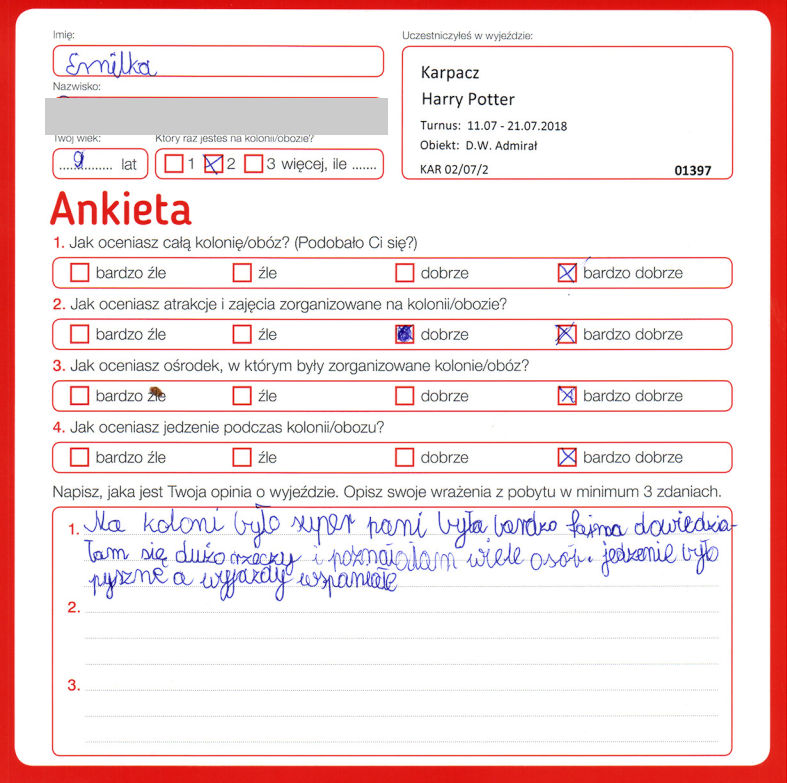 Imię:
Emilka
Nazwisko:
Twój wiek:
9 lat
Który raz jesteś na kolonii/obozie?
1 2 3 więcej, ile .......
Uczestniczyłeś w wyjeździe:
Karpacz
Harry Potter
Turnus: 11.07 - 21.07.2018
Obiekt: D.W. Admirał
KAR 02/07/2 01397
Ankieta
1. Jak oceniasz całą kolonię/obóz? (Podobało Ci się?)
bardzo źle źle dobrze bardzo dobrze
2. Jak oceniasz atrakcje i zajęcia zorganizowane na kolonii/obozie?
bardzo źle źle dobrze bardzo dobrze
3. Jak oceniasz ośrodek, w którym były zorganizowane kolonie/obóz?
bardzo źle źle dobrze bardzo dobrze
4. Jak oceniasz jedzenie podczas kolonii/obozu?
bardzo źle źle dobrze bardzo dobrze
Napisz, jaka jest Twoja opinia o wyjeździe. Opisz swoje wrażenia z pobytu w minimum 3 zdaniach.
1. Na koloni było super pani była bardzo fajna dowiedzia-
łam się dużo rzeczy i poznałam wiele osób. jedzenie było
pyszne a wyjazdy wspaniałe
2.
3.